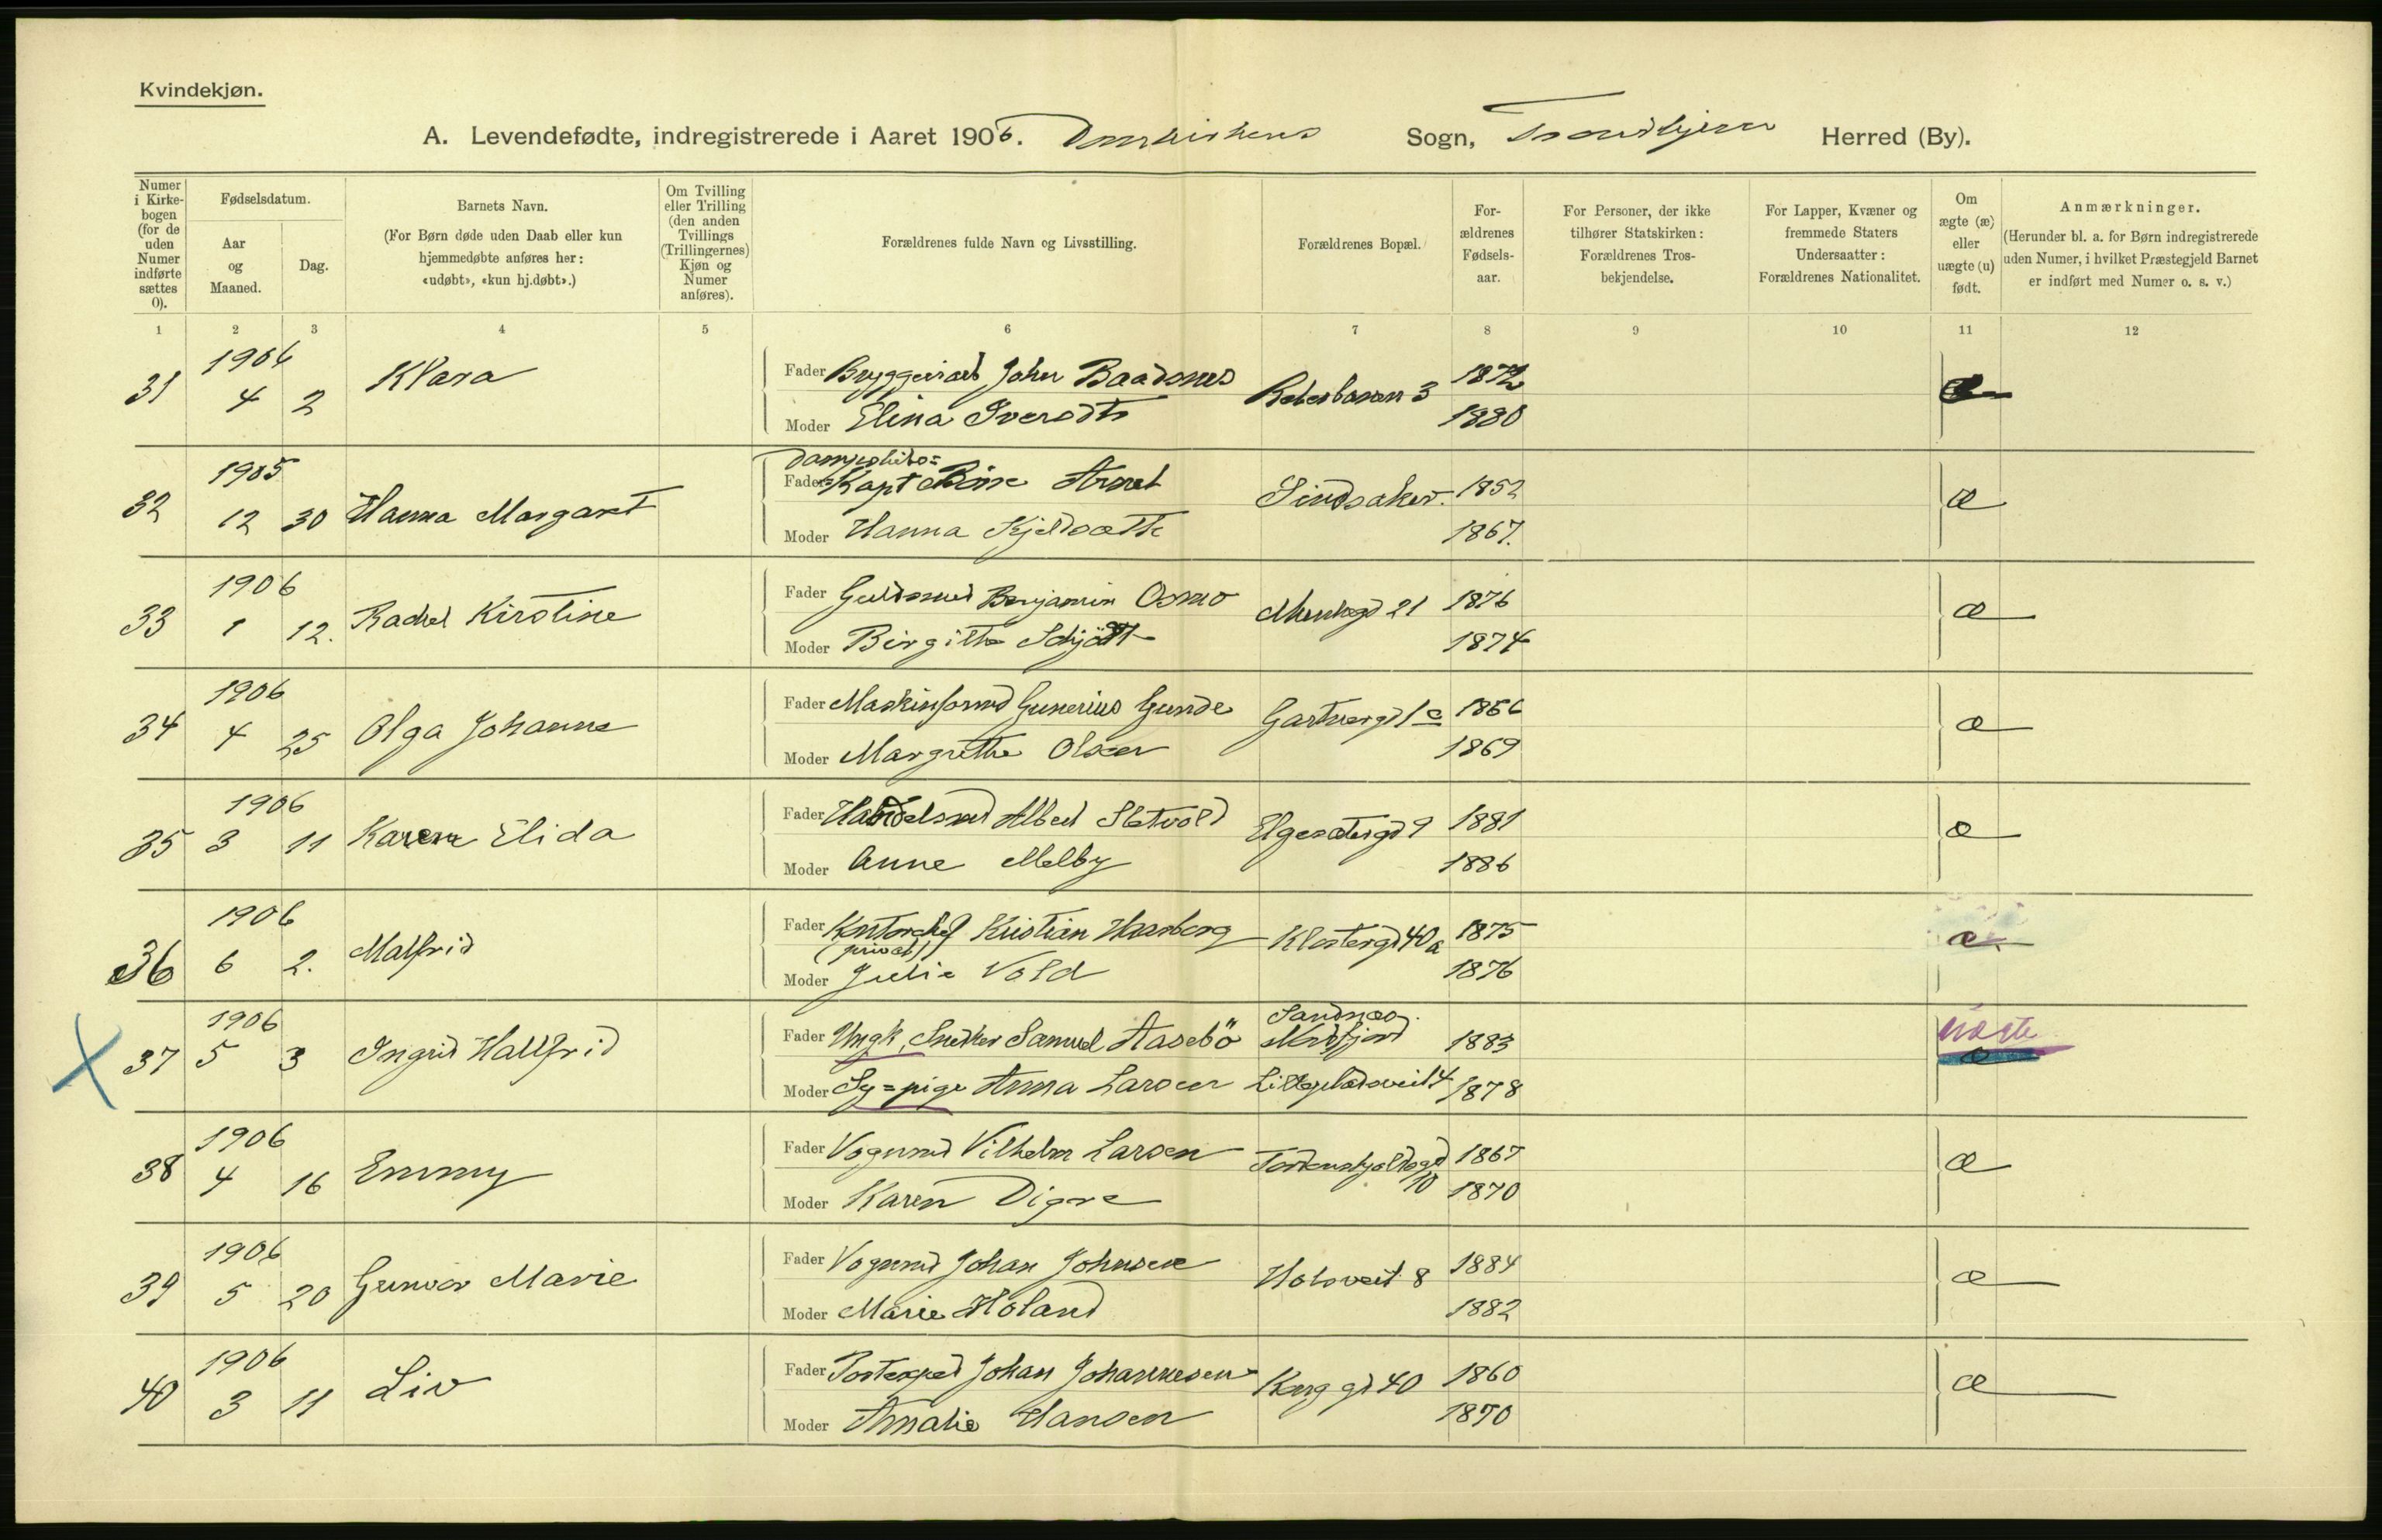 Kvindekjøn.
A. Levendefødte, indregistrerede i Aaret 1906. Domkirkens Sogn, Trondhjem Herred (By).
Numer i Kirkebogen (for de uden Numer indførte sættes 0).
Fødselsdatum.
Aar og Maaned.
Dag.
Barnets Navn.
(For Børn døde uden Daab eller kun hjemmedøbte anføres her: «udøbt», «kun hj.døbt».)
Om Tvilling eller Trilling (den anden Tvillings (Trillingernes) Kjøn og Numer anføres).
Forældrenes fulde Navn og Livsstilling.
Forældrenes Bopæl.
Forældrenes Fødselsaar.
For Personer, der ikke tilhører Statskirken: Forældrenes Trosbekjendelse.
For Lapper, Kvæner og fremmede Staters Undersaatter: Forældrenes Nationalitet.
Om ægte (æ) eller uægte (u) født.
Anmærkninger.
(Herunder bl. a. for Børn indregistrerede uden Numer, i hvilket Præstegjeld Barnet er indført med Numer o. s. v.)
1 2 3 4 5 6 7 8 9 10 11 12
31 1906 4 2 Klara
Fader Bryggeriarb John Baadsnes 1872 æ
Moder Elina 1880
32 1905 12 30 Hanna Margaret
Dampskibs=
Fader Kapt Arnet 1852 æ
Moder Hanna 1867.
33 1906 1 12. Rachel Kirstine
Fader Guldsmed Benjamin Osmo Munkegd 21 1876 æ
Moder Birgitha Schjött 1874
34 1906 4 25 Olga Johanne
Fader Gunerius Gunde Gartnergd 1 c 1866 æ
Moder Margrethe Olsen 1869
35 1906 3 11 Karen Elida
Fader Albert Sletvold Elgesætergd 9 1881 æ
Moder Anne Melby 1886
36 1906 6 2. Malfrid
Fader Kontorchef Kristian Haarberg Klostergd 40a 1875 æ
(privat)
Moder Julie Vold 1876
37 1906 5 3 Ingrid Hallfrid
Fader Ungk, Snedker Samuel Aasebö Sandnes. 1883 uægte
Moder Sy=pige Anna Larsen 1878
38 1906 4 16 Emmy
Fader Vognmd Vilhelm Larsen Tordenskjoldsgd 10 1867 æ
Moder Karen Digre 1870
39 1906 5 20 Gunvor Marie
Fader Vognmd Johan Johnsen 1884 æ
Moder Marie Höland 1882
40 1906 3 11 Liv
Fader Postexped Johan Johannesen Kong gd 40 1860 æ
Moder Amalie Hansen 1870